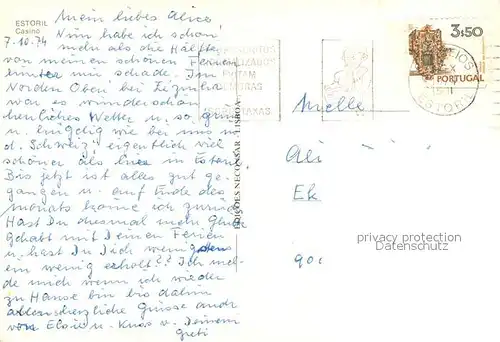 ESTORIL
Casino
7.10.74
Mein liebes Alice,
Nun habe ich schon
mehr als die Hälfte
von meinen schönen Ferien
hinter mir schade. Im
Norden Oben bei
war es wunderschön
herrliches Wetter u. so grün
u. hügelig wie bei uns in
d. Schweiz, eigentlich viel
schöner als hier in Estoril.
Bis jetzt ist alles gut ge-
gangen u. auf Ende des
Monats komme ich zurück
Hast Du diesmal mehr Glück
gehabt mit Deinen Ferien
u. hast Du Dich wenigstens
ein wenig erholt?? Ich mel-
de mich wenn ich wieder
zu Hause bin bis dahin
allerherzliche Grüsse auch
von u. Kuss v. Deinem
Greti
EDIÇÕES NECONSAR - LISBOA
3$50
PORTUGAL
ESTORIL
TAXAS
Mlle
Ali
900
privacy protection
Datenschutz